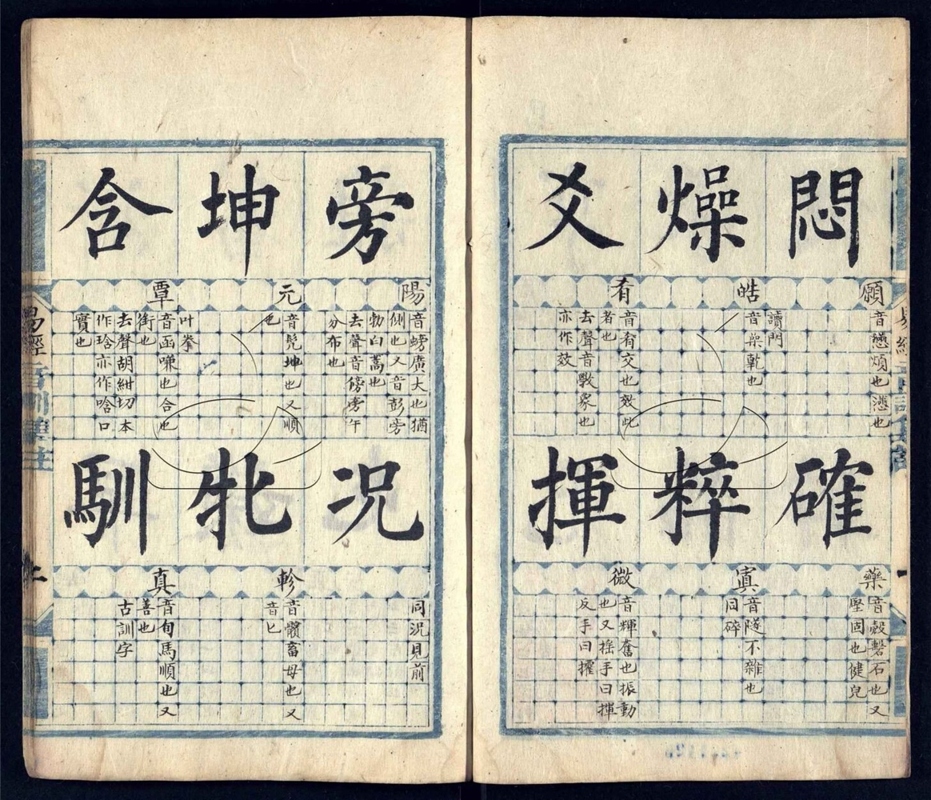 悶
願
音懣煩也懣也
燥
皓
讀門
音㷮乾也
爻
肴
音肴交也效此
者也
去聲音斆象也
亦作效
確
藥
音㱿磬石也又
堅固也健皃
粹
寘
音隧不雜也
同碎
揮
微
音輝奮也振動
也又搖手曰揮
反手曰攉
旁
陽
音螃廣大也猶
側也又音彭旁
勃白蒿也
去聲音傍旁午
分布也
坤
元
音髡坤也又順
也
含
覃
叶拳
音函嗛也合也
銜也
去聲胡紺切本
作琀亦作唅口
實也
況
同況見前
牝
軫
音髕畜母也又
音匕
馴
真
音旬馬順也又
善也
古訓字
易經
上